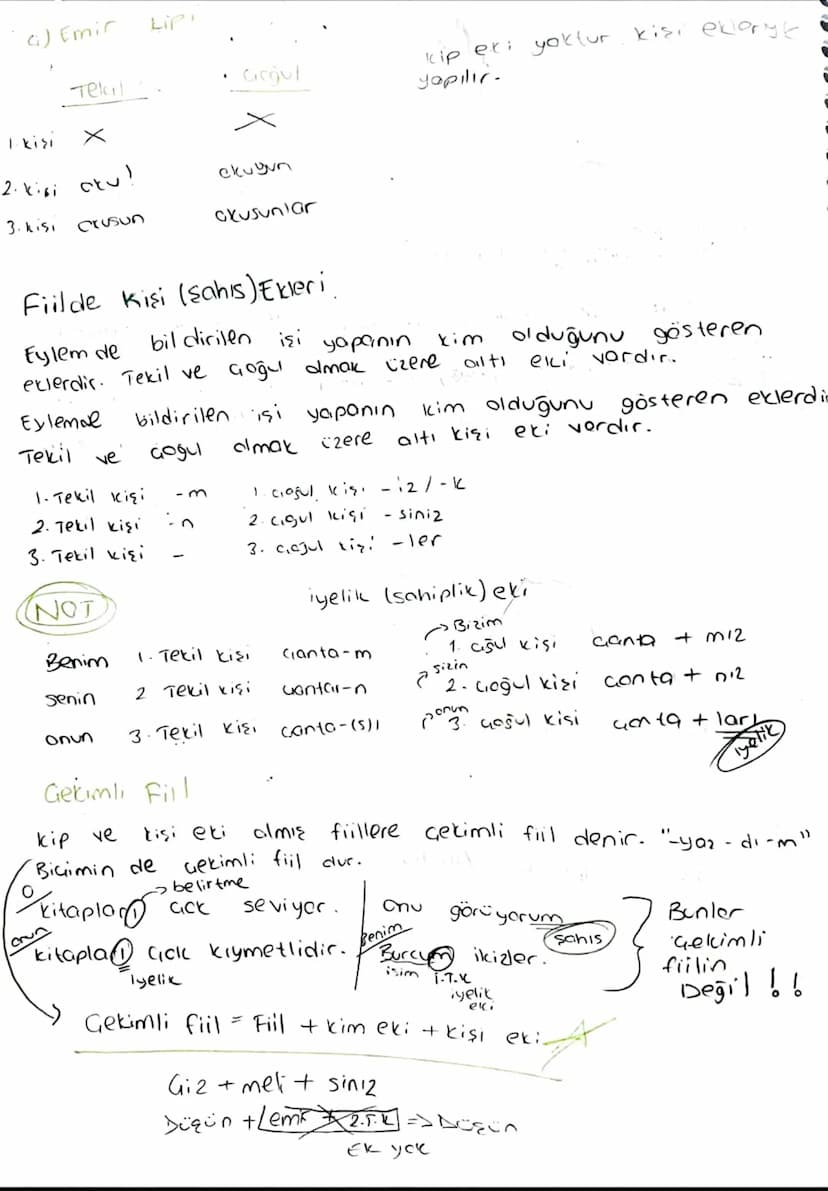 a) Emir Kipi
Kip eki yoktur kişi ekleriyle
yapılır.
Tekil Çoğul
1. kişi X X
2. kişi oku! okuyun
3. kişi okusun okusunlar
Fiilde Kişi (şahıs) Ekleri.
Eylemde bildirilen işi yapanın kim olduğunu gösteren
eklerdir. Tekil ve çoğul olmak üzere altı eki vardır.
Eylemde bildirilen işi yapanın kim olduğunu gösteren eklerdir
Tekil ve çoğul olmak üzere altı kişi eki vardır.
1. Tekil kişi -m 1. çoğul kişi -iz / -k
2. Tekil kişi -n 2. çoğul kişi - siniz
3. Tekil kişi - 3. çoğul kişi -ler
NOT
iyelik (sahiplik) eki
Benim 1. Tekil kişi çanta-m → Bizim 1. çoğul kişi çanta + mız
senin 2 Tekil kişi çanta-n → sizin 2. çoğul kişi çanta + nız
onun 3. Tekil kişi çanta-(s)ı → onun 3. çoğul kişi çanta + ları
iyelik
Çekimli Fiil
Kip ve kişi eki almış fiillere çekimli fiil denir. "-yaz - dı -m"
Biçimin de çekimli fiil olur.
→ belirtme
O kitapları çok seviyor. onu görüyorum
şahıs
onun kitapları çok kıymetlidir. Benim Burcum ikizler.
iyelik
isim 1.T.K
iyelik
eki
Bunlar
çekimli
fiilin
Değil !!
→ Çekimli fiil = Fiil + kim eki + kişi eki
Giz + meli + siniz
Düşün + emk + 2.T.K => Düşün
Ek yok